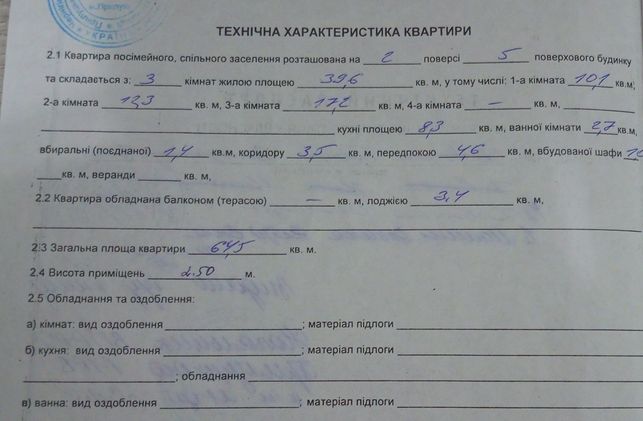 м.Прилуки
УКРАЇНА
ТЕХНІЧНА ХАРАКТЕРИСТИКА КВАРТИРИ
2.1 Квартира посімейного, спільного заселення розташована на 2 поверсі 5 поверхового будинку
та складається з; 3 кімнат жилою площею 39,6 кв. м, у тому числі: 1-а кімната 10,1 кв.м,
2-а кімната 12,3 кв. м, 3-а кімната 17,2 кв. м, 4-а кімната — кв. м,
кухні площею 8,3 кв. м, ванної кімнати 2,7 кв.м,
вбиральні (поєднаної) 1,4 кв.м, коридору 3,5 кв.м, передпокою 4,6 кв. м, вбудованої шафи
кв. м, веранди кв. м,
2.2 Квартира обладнана балконом (терасою) — кв. м, лоджією 3,4 кв. м,
2.3 Загальна площа квартири 64,5 кв. м.
2.4 Висота приміщень 2.50 м.
2.5 Обладнання та оздоблення:
а) кімнат: вид оздоблення ; матеріал підлоги
б) кухня: вид оздоблення ; матеріал підлоги
; обладнання
в) ванна: вид оздоблення ; матеріал підлоги